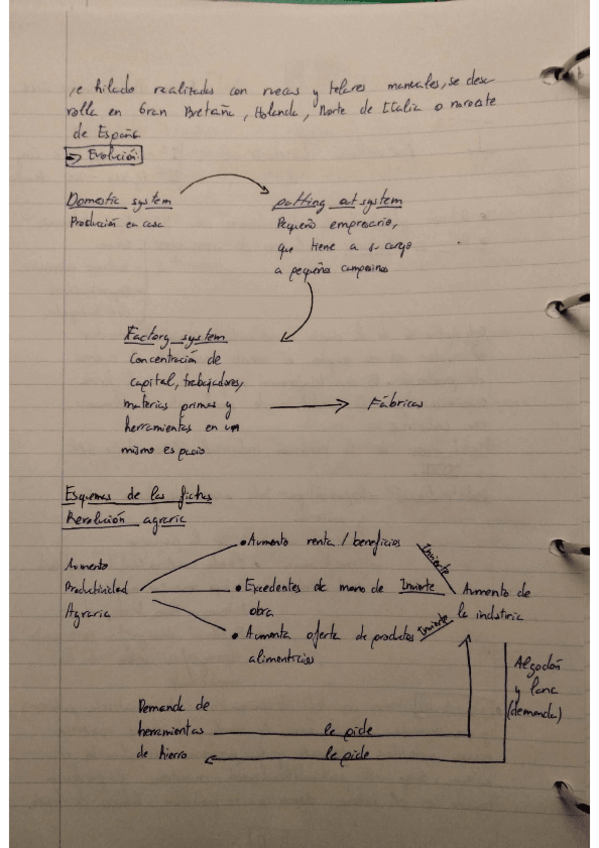 e hilado realizadas con ruecas y telares manuales, se desa
rolla en Gran Bretaña, Holanda, Norte de Italia o noroeste
de España
→ Evolución:
Domestic system
Producción en casa
putting out system
Pequeño empresario,
que tiene a su cargo
a pequeños campesinos
Factory system
Concentración de
capital, trabajadores,
materias primas y
herramientas en un
mismo espacio
Fábricas
Esquemas de las fichas
Revolución agraria
Aumento
Productividad
Agraria
• Aumento renta / beneficios
Invierte
• Excedentes de mano de
obra
Invierte
• Aumenta oferta de productos
alimenticios
Invierte
Aumento de
la industria
Algodón
y lana
(demanda)
Demanda de
herramientas
de hierro
le pide
le pide